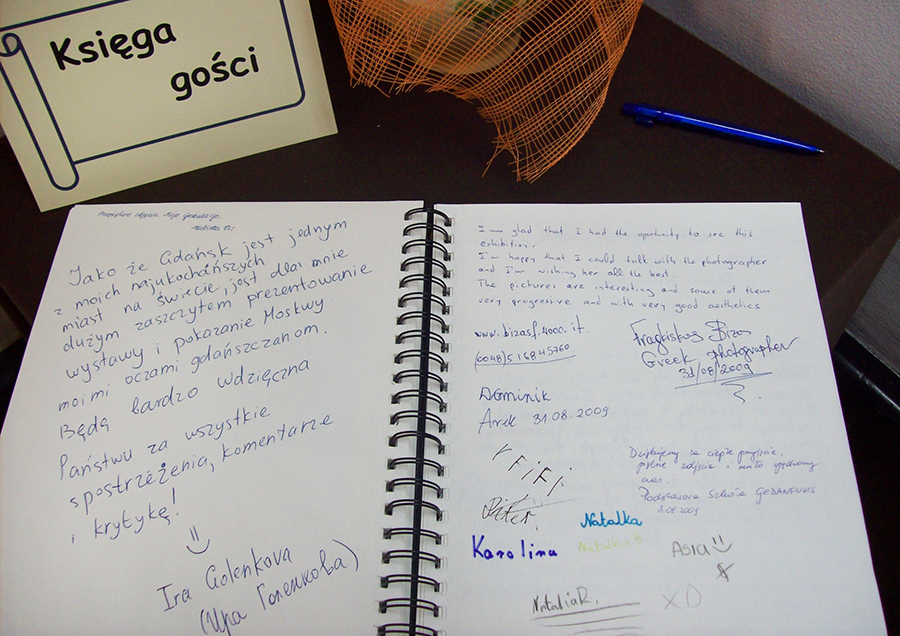 Księga
gości
Jako że Gdańsk jest jednym
z moich najukochańszych
miast na świecie, jest dla mnie
dużym zaszczytem prezentowanie
wystawy i pokazanie Moskwy
moimi oczami gdańszczanom.
Będę bardzo wdzięczna
Państwu za wszystkie
spostrzeżenia, komentarze
i krytykę!
Ira Golenkova
(Ира Голенкова)
I am glad that I had the oportunity to see this
exhibition.
I'm happy that I could talk with the photographer
and I'm wishing her all the best.
The pictures are interesting and some of them
very progressive and with very good aesthetics
(0048)516845760
Fragkiskos Bizas
Greek photographer
31/08/2009
Dominik
Arek 31.08.2009
FiFi
Dziękujemy za ciepłe przyjęcie,
piękne zdjęcia i miło spędzony
czas.
Podstawowa Szkoła GEDANENSIS
Piter.
Natalka
Karolina
Natalia B
Asia
NataliaR.
XD